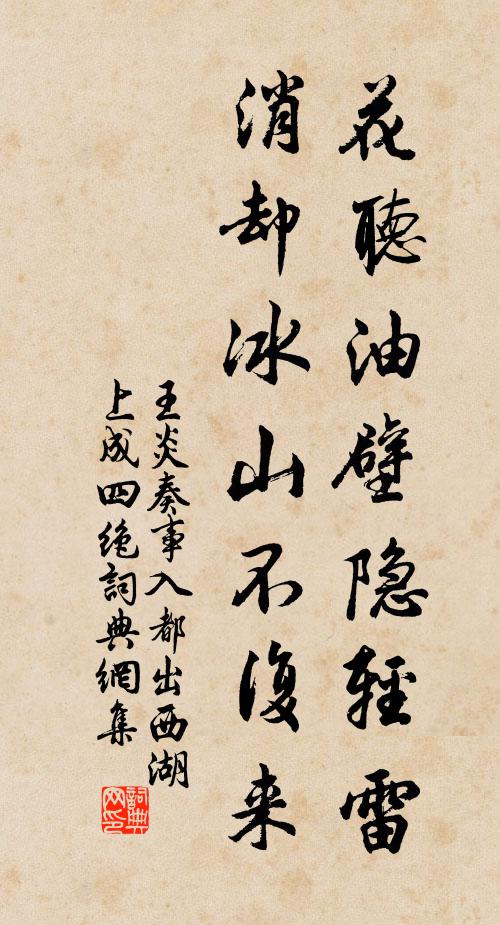 花聽油壁隐輕雷
消却冰山不復来
王炎奏事入都出西湖
上成四绝詞典網集
詞典
网印